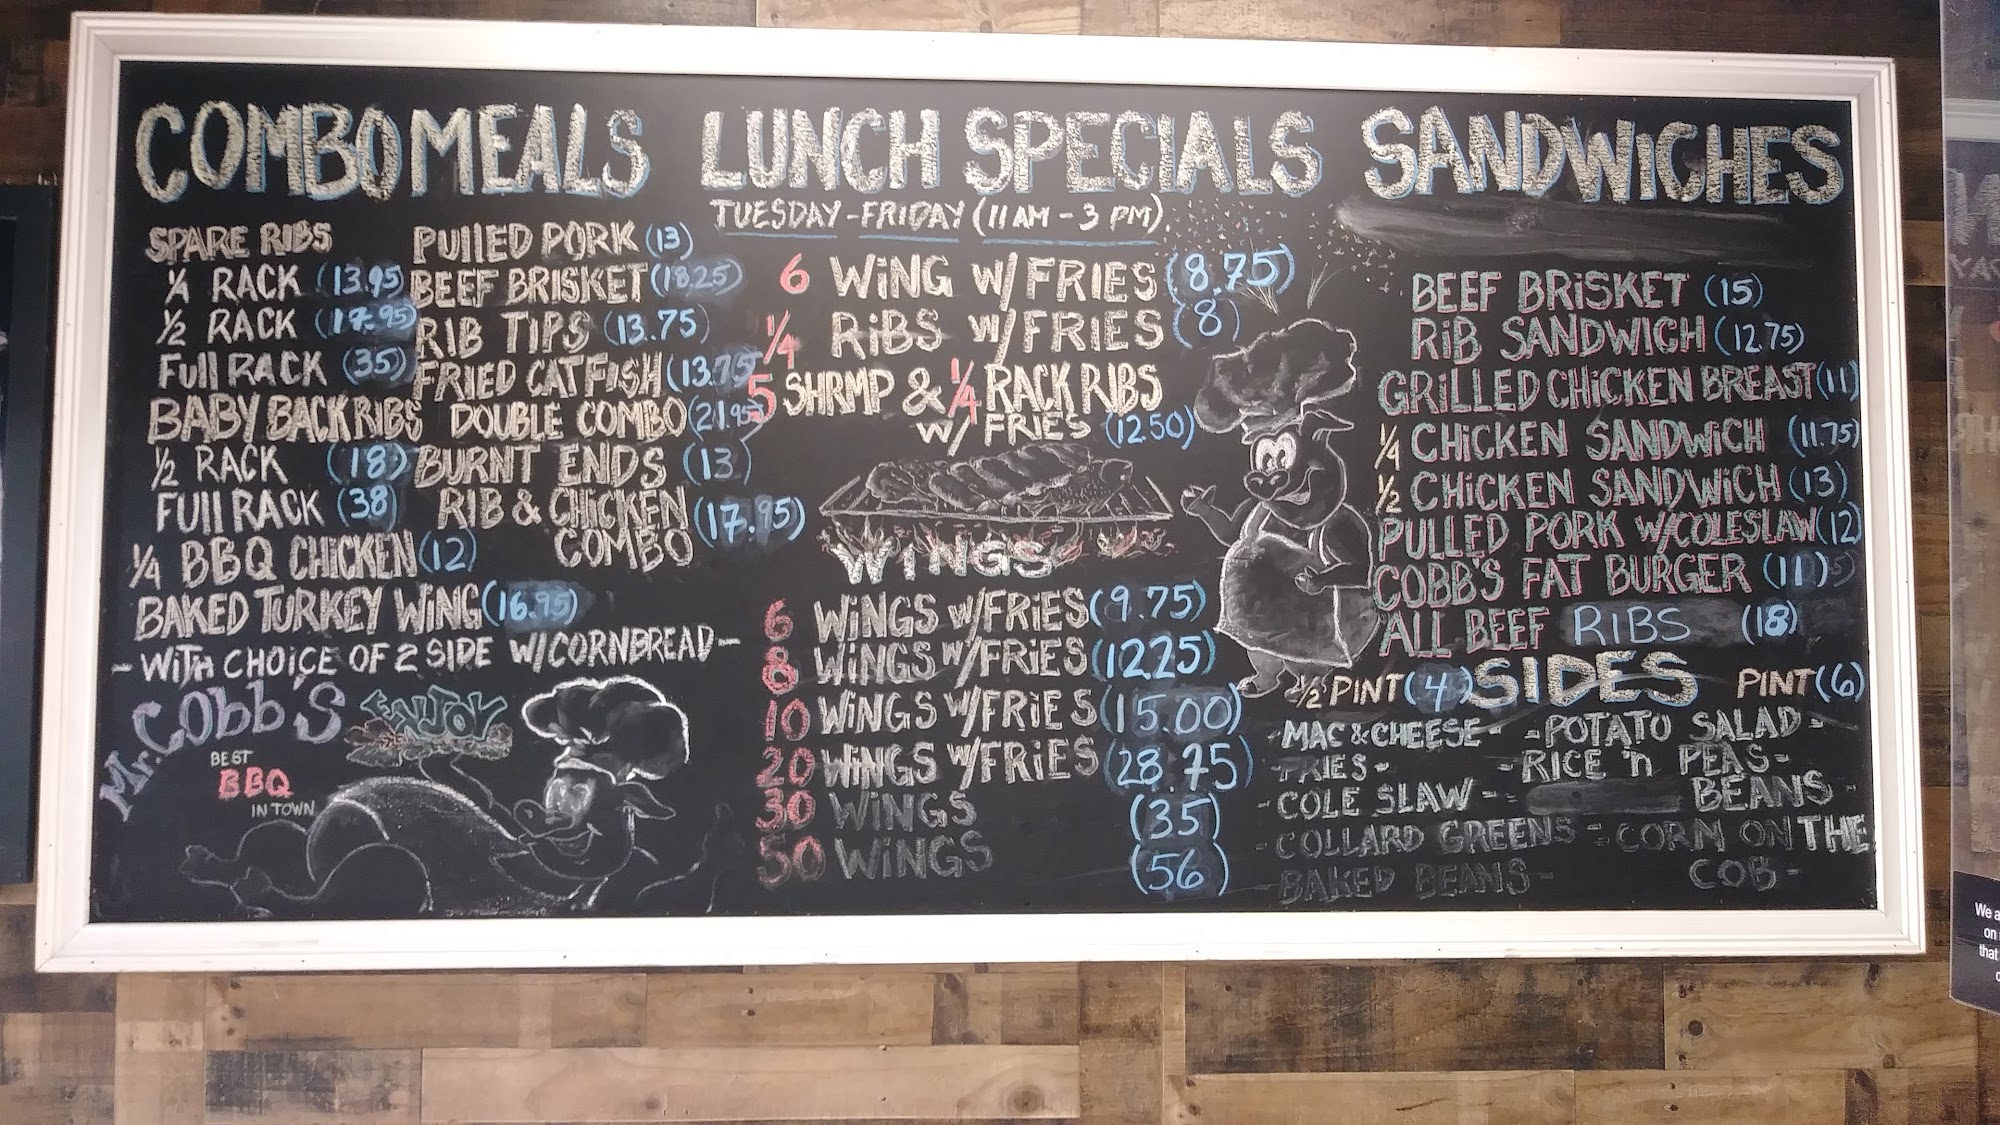 COMBO MEALS
SPARE RIBS
1/4 RACK (13.95)
1/2 RACK (17.95)
FUll RACK (35)
BABY BACK RIBS
1/2 RACK (18)
FUll RACK (38)
1/4 BBQ CHICKEN (12)
BAKED TURKEY WiNG (16.95)
PUllED PORK (13)
BEEF BRISKET (18.25)
RIB TIPS (13.75)
FRIED CATFISH (13.75)
DOUBLE COMBO (21.95)
BURNT ENDS (13)
RIB & CHICKEN
COMBO (17.95)
- WITH CHOiCE OF 2 SIDE W/CORNBREAD -
Mr. Cobb's
BEST
BBQ
IN TOWN
ENJOY
LUNCH SPECIALS
TUESDAY - FRIDAY (11 AM - 3 PM).
6 WiNG W/ FRIES (8.75)
1/4 RiBS W/ FRIES (8)
5 SHRMP & 1/4 RACK RIBS
W/ FRIES (12.50)
WiNGS
6 WiNGS W/FRiES (9.75)
8 WiNGS W/FRiES (12.25)
10 WiNGS W/FRiES (15.00)
20 WiNGS W/FRiES (28.75)
30 WiNGS (35)
50 WiNGS (56)
SANDWiCHES
BEEF BRiSKET (15)
RiB SANDWiCH (12.75)
GRiLLED CHiCKEN BREAST (11)
1/4 CHiCKEN SANDWiCH (11.75)
1/2 CHiCKEN SANDWiCH (13)
PULLED PORK W/COLESLAW (12)
COBB'S FAT BURGER (11)
ALL BEEF RIBS (18)
1/2 PINT (4) SIDES PINT (6)
- MAC & CHEESE - - POTATO SALAD -
- FRIES - - RICE 'n PEAS -
- COLE SLAW - - BEANS -
- COLLARD GREENS - - CORN ON THE
- BAKED BEANS - COB -
We a
on
that